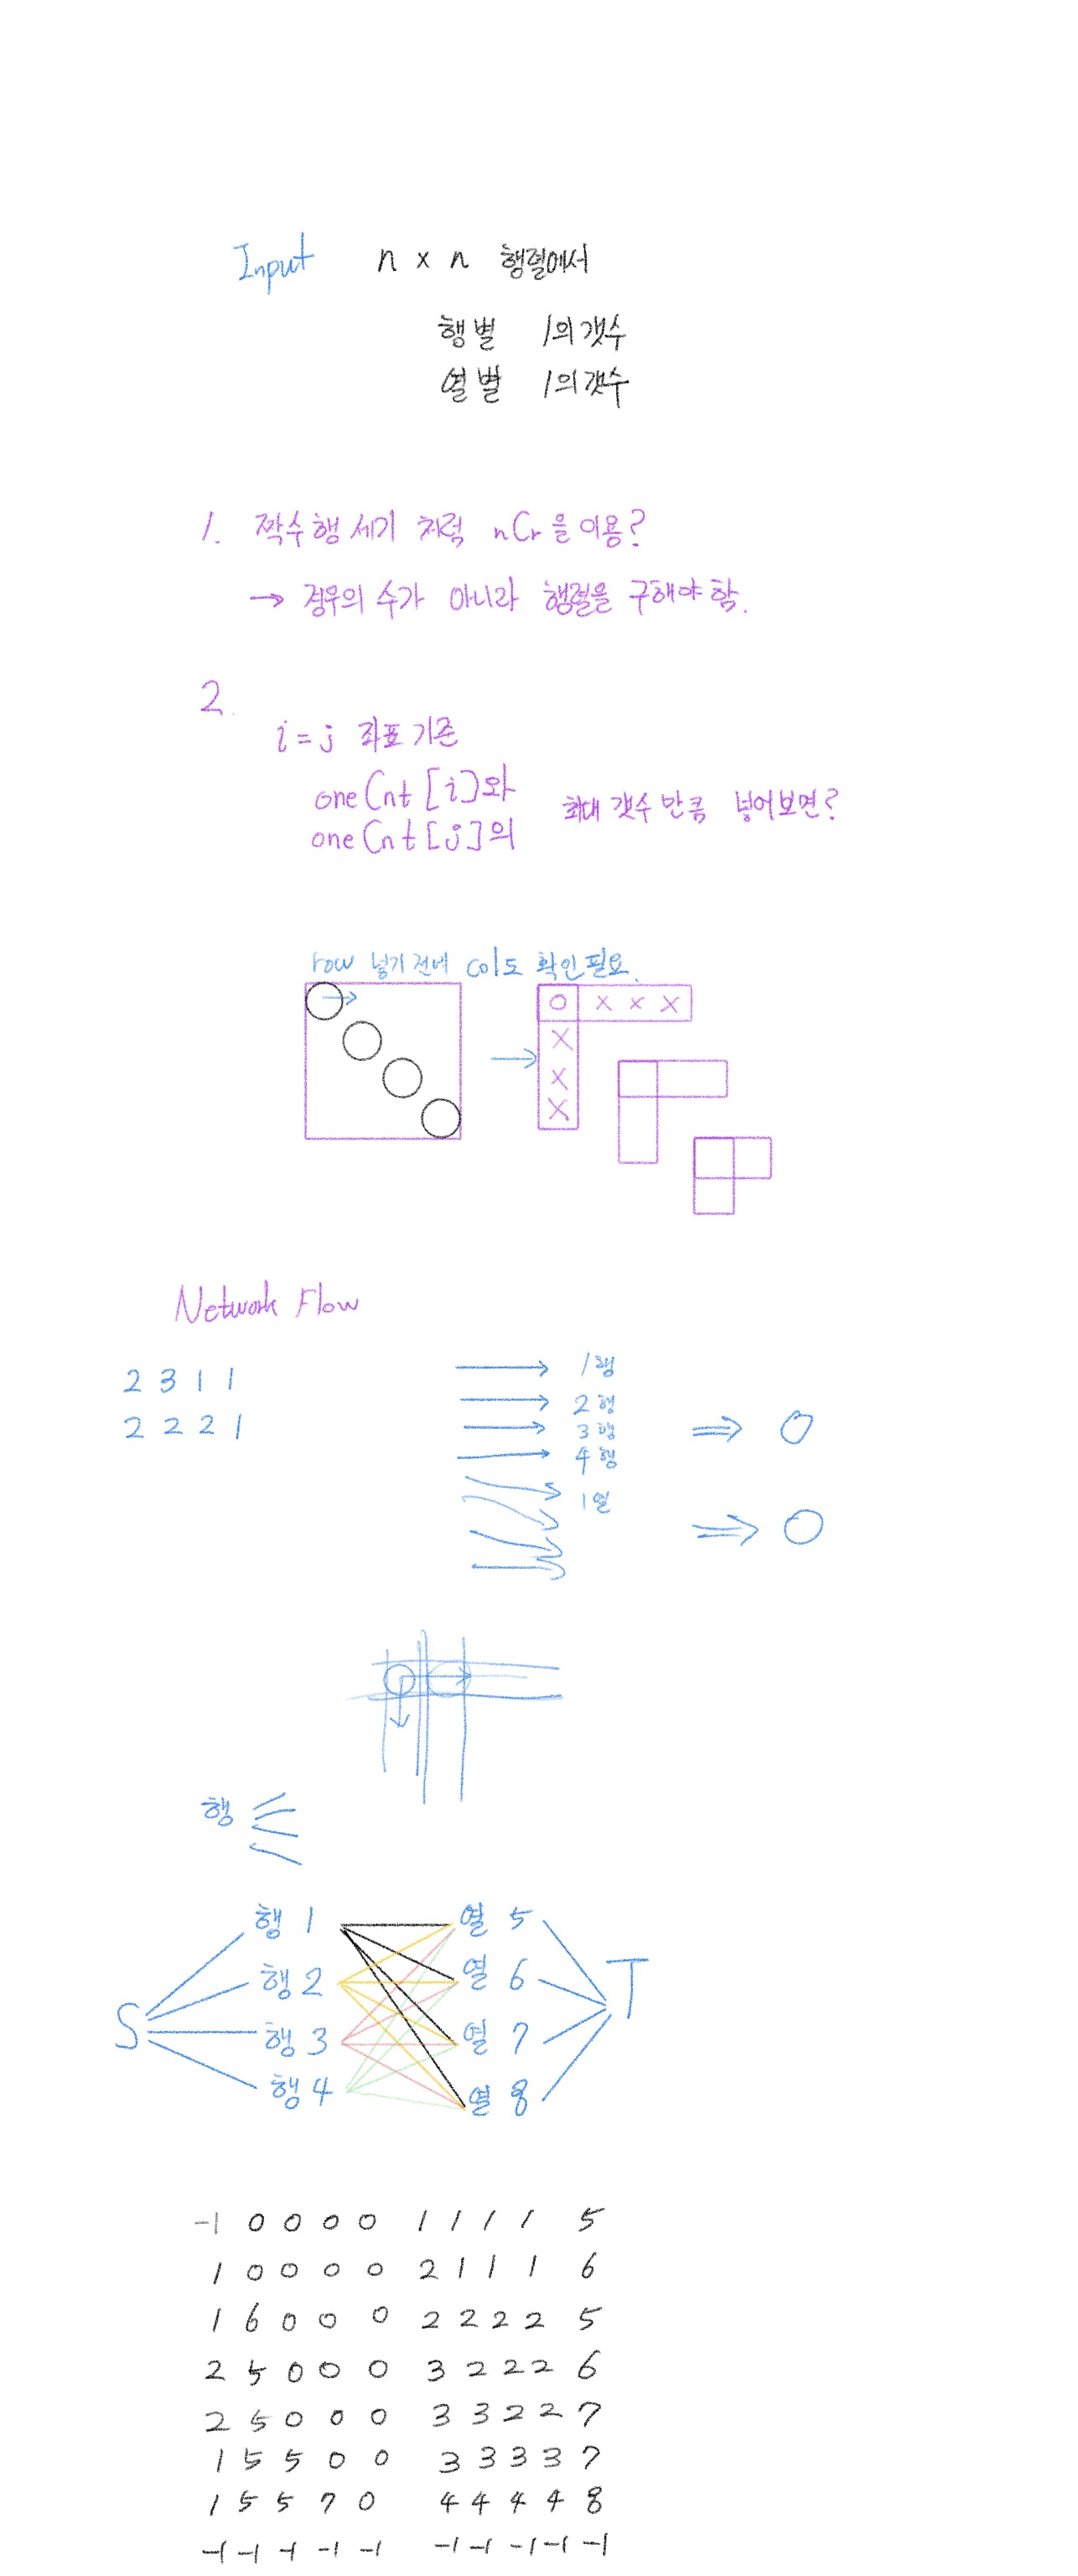 Input n x n 행렬에서
행별 1의 갯수
열별 1의 갯수
1. 짝수행 세기 처럼 nCr을 이용?
→ 경우의 수가 아니라 행렬을 구해야 함.
2.
i = j 좌표 기준
oneCnt [i]와
oneCnt [j]의 최대 갯수 만큼 넣어보면?
row 넣기 전에 col도 확인 필요.
O x x x
x
x
x
Network Flow
2 3 1 1
2 2 2 1
1행
2행
3행
4행
1열
⇒ 0
⇒ 0
행
행 1 열 5
행 2 열 6
S T
행 3 열 7
행 4 열 8
-1 0 0 0 0 1 1 1 1 5
1 0 0 0 0 2 1 1 1 6
1 6 0 0 0 2 2 2 2 5
2 5 0 0 0 3 2 2 2 6
2 5 0 0 0 3 3 2 2 7
1 5 5 0 0 3 3 3 3 7
1 5 5 7 0 4 4 4 4 8
-1 -1 -1 -1 -1 -1 -1 -1 -1 -1